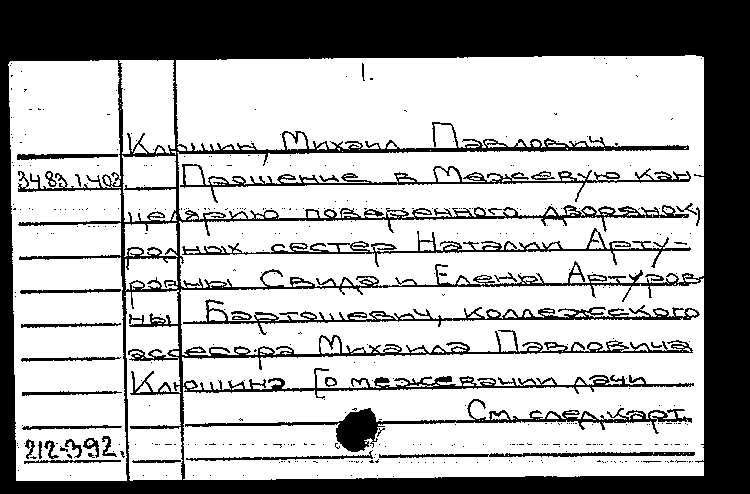 1.
Клюшин, Михаил Павлович.
34.83.1.403 Прошение в Межевую кан-
целярию поверенного дворянок,
родных сестер Наталии Арту-
ровны Свида и Елены Артуров-
ны Бартошевич, коллежского
ассесора Михаила Павловича
Клюшина [о межевании дачи
См. след. карт.
212-392.